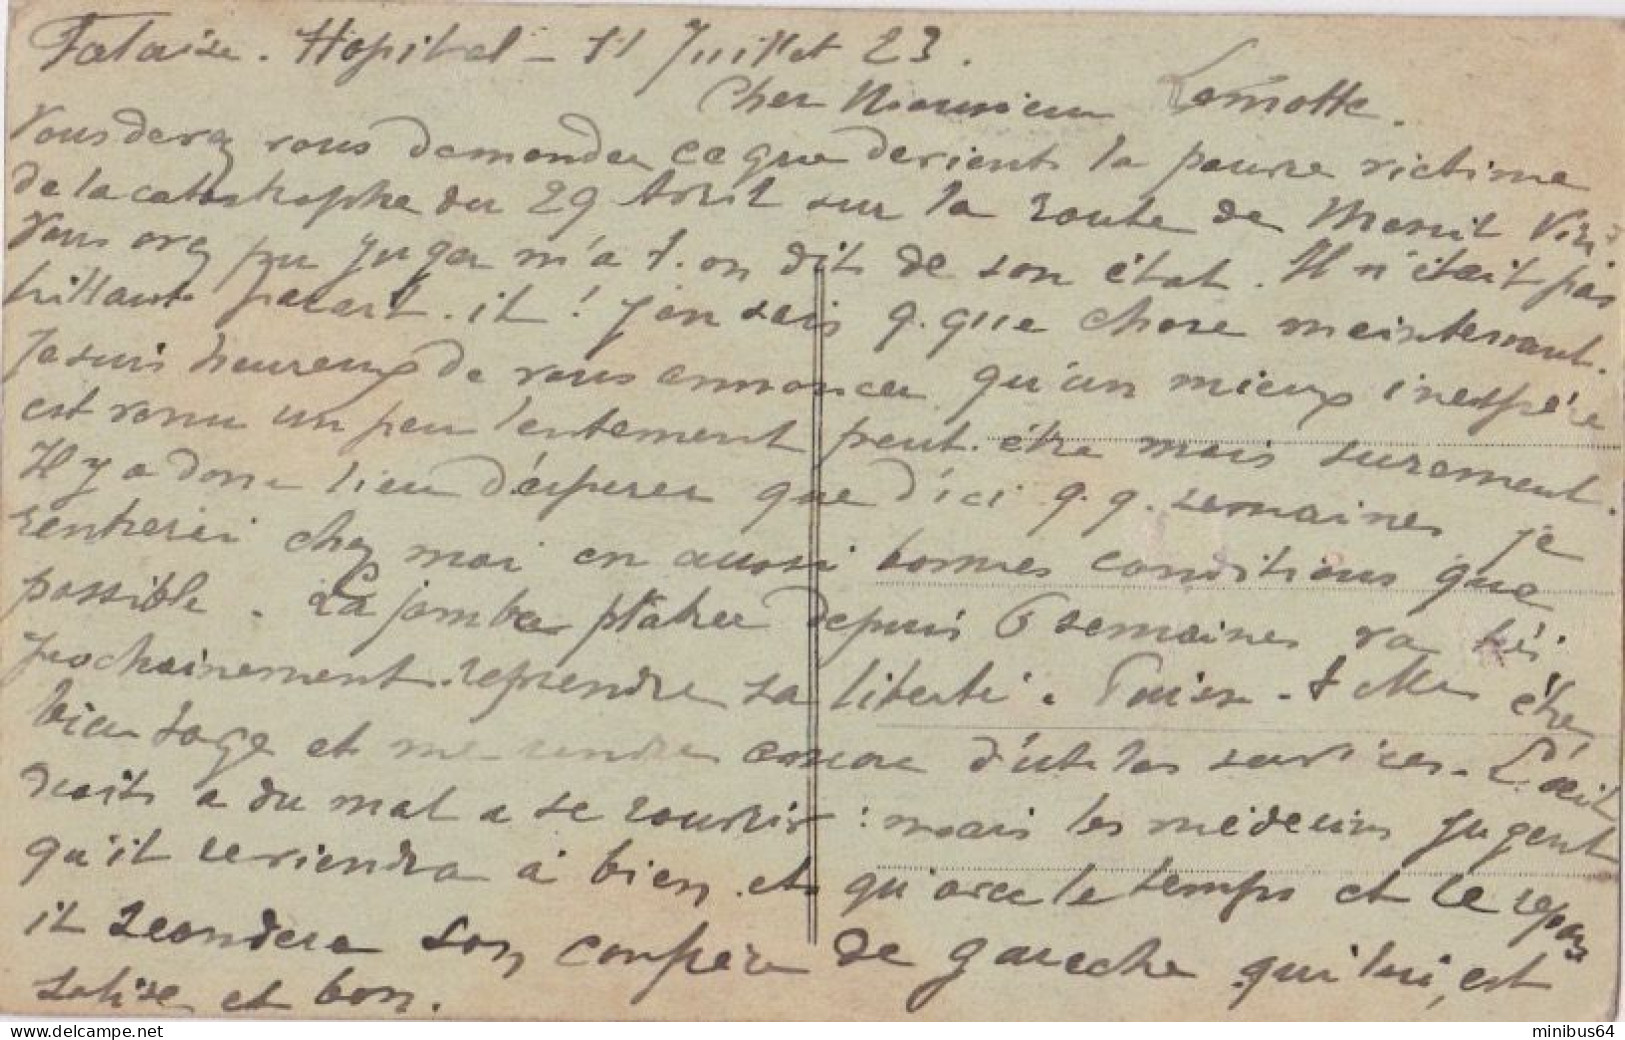 Falaise. Hopital - 11 Juillet 23.
Cher Monsieur Lamotte.
Vous devez vous demander ce que devient la pauvre victime
de la catastrophe du 29 Avril sur la route de Mesnil
Vous avez pu juger m'a t. on dit de son état. Il n'était pas
brillant parait. il ! J'en sais q. que chose maintenant.
Je suis heureux de vous annoncer qu'un mieux inespéré
est venu un peu lentement peut. être mais surement.
Il y a donc lieu d'espérer que d'ici q. q. semaines je
rentrerai chez moi en aussi bonnes conditions que
possible. La jambe platrée depuis 6 semaines va très
prochainement reprendre sa liberté. Puisse. t. elle être
bien sage et me rendre encore d'utiles services. L'œil
droit a du mal a se rouvrir : mais les médecins jugent
qu'il reviendra à bien et qu'avec le temps et le repos
il secondera son confrère de gauche qui lui, est
solide et bon.
minibus64
delcampe.net